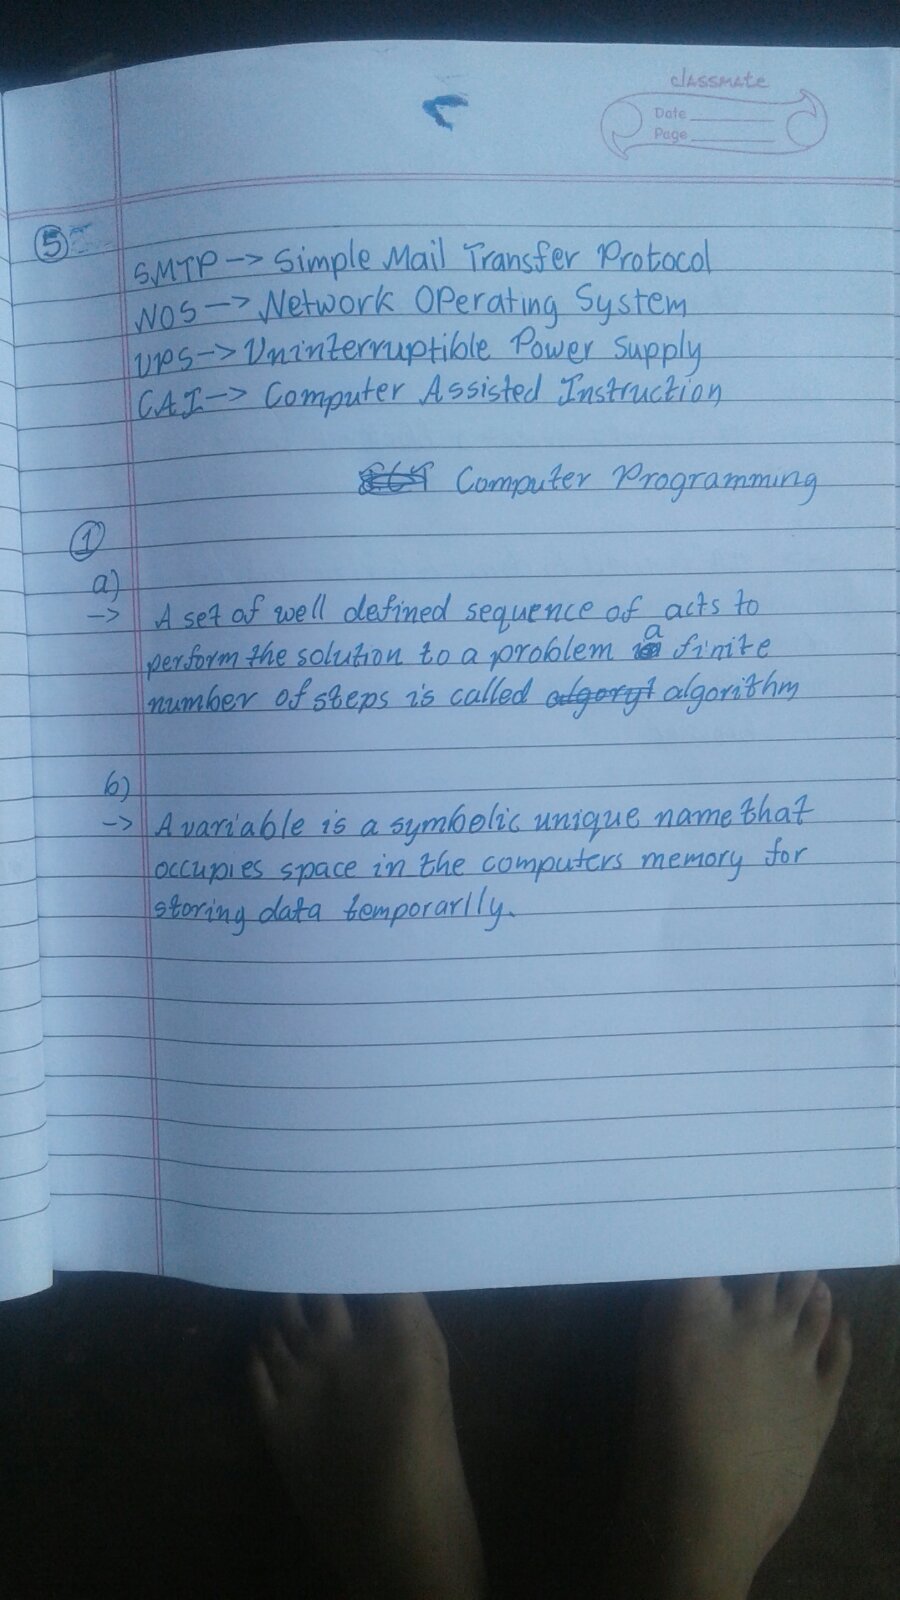 classmate
Date
Page
5
SMTP -> Simple Mail Transfer Protocol
NOS -> Network Operating System
UPS -> Uninterruptible Power Supply
CAI -> Computer Assisted Instruction
Computer Programming
1
a)
-> A set of well defined sequence of acts to
perform the solution to a problem a finite
number of steps is called algorithm
b)
-> A variable is a symbolic unique name that
occupies space in the computers memory for
storing data temporarlly.